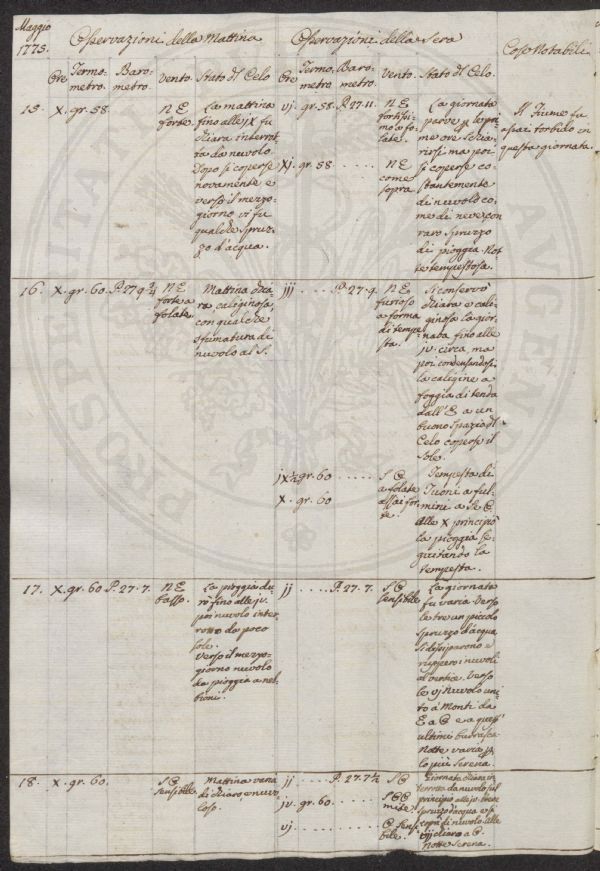 Maggio
1775.
Osservazioni della Mattina
Osservazioni della Sera
Cose Notabili
Ore
Termo-
metro.
Baro-
metro.
Vento.
Stato del Celo
Ore
Termo-
metro.
Baro-
metro.
Vento.
Stato del Celo.
15.
X. gr. 58.
N E
forte.
La mattina
fino alle jX fu
chiara interrot
ta da nuvolo.
Dopo si coperse
novamente e
verso il mezzo-
giorno vi fu
qualche spruz-
zo d'acqua.
vj. gr. 58. P. 27. 11.
N E
fortissi-
mo a fo-
late.
La giornata
parve le pri-
me ore schia-
rirsi ma poi
Xj. gr. 58 . . . . .
N E
come
sopra.
si coperse co-
stantemente
di nuvolo co-
me di neve con
raro spruzzo
di pioggia. Not
te tempestosa.
Il Fiume fu
assai torbido in
questa giornata.
16.
X. gr. 60. P. 27. 9 3/4
N E
forte a
folate.
Mattina chia-
ra, caliginosa,
con qualche
sfumatura di
nuvolo al S.
jjj . . . . P. 27. 9.
N E
furioso
a forma
di tempe-
sta.
Si conservò
chiara e cali-
ginosa la gior-
nata fino alle
jv. circa, ma
poi condensandosi
la caligine a
foggia di tenda
dall' E a un
buono spazio del
Celo coperse il
Sole.
jX 1/2 gr. 60 . . . . .
S E
a folate
assai for-
te.
X. gr. 60
Tempesta di
Tuoni e ful-
mini a
alle X principiò
la pioggia se-
guitando la
tempesta.
17.
X. gr. 60 P. 27. 7.
N E
basso.
La pioggia du-
rò fino alle jv.
poi nuvolo inter
rotto da poco
sole.
Verso il mezzo-
giorno nuvolo
da pioggia a neb
bioni.
jj . . . . P. 27. 7.
S E
sensibile.
La giornata
fu varia. Verso
le tre un piccolo
spruzzo d'acqua
si dissiparono e
ruppero i nuvoli
al vertice. Verso
le vj nuvolo uni-
to à Monti da
E a e a quest'
ultimi burrasca.
Notte varia
lo più serena.
18.
X. gr. 60.
S E
sensibile.
Mattina varia
di chiaro, e nuvo-
loso.
jj . . . . . P. 27. 7 1/2
S E
jv. gr. 60. . . . . .
S E E
mite.
vj . . . . . . . . .
E sensi-
bile.
Giornata chiara in-
terrotta da nuvolo sul
principio alle jv. breve
spruzzo d'acqua e si
coprì di nuvolo alle
vjj chiaro a E
Notte serena.